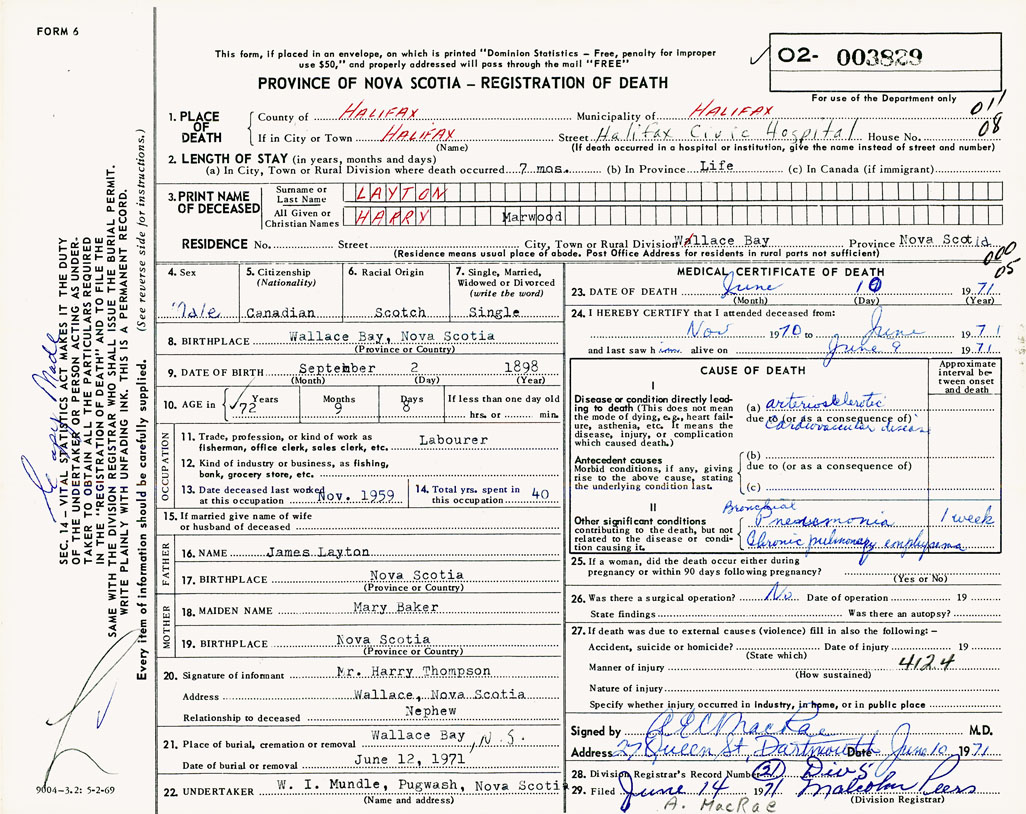 FORM 6
This form, if placed in an envelope, on which is printed "Dominion Statistics – Free, penalty for improper
use $50," and properly addressed will pass through the mail "FREE"
PROVINCE OF NOVA SCOTIA – REGISTRATION OF DEATH
02- 003829
For use of the Department only
011
08
1. PLACE OF DEATH
County of HALIFAX Municipality of HALIFAX
If in City or Town HALIFAX Street Halifax Civic Hospital House No.
(Name) (If death occurred in a hospital or institution, give the name instead of street and number)
2. LENGTH OF STAY (in years, months and days)
(a) In City, Town or Rural Division where death occurred 7 mos. (b) In Province Life (c) In Canada (if immigrant)
3. PRINT NAME OF DECEASED
Surname or Last Name LAYTON
All Given or Christian Names HARRY Marwood
RESIDENCE No. Street City, Town or Rural Division Wallace Bay Province Nova Scotia
(Residence means usual place of abode. Post Office Address for residents in rural parts not sufficient)
000
05
4. Sex Male
5. Citizenship (Nationality) Canadian
6. Racial Origin Scotch
7. Single, Married, Widowed or Divorced (write the word) Single
8. BIRTHPLACE Wallace Bay, Nova Scotia
(Province or Country)
9. DATE OF BIRTH September 2 1898
(Month) (Day) (Year)
10. AGE in Years 72 Months 9 Days 8 If less than one day old
hrs. or min.
OCCUPATION
11. Trade, profession, or kind of work as
fisherman, office clerk, sales clerk, etc. Labourer
12. Kind of industry or business, as fishing,
bank, grocery store, etc.
13. Date deceased last worked
at this occupation Nov. 1959
14. Total yrs. spent in
this occupation 40
15. If married give name of wife
or husband of deceased
FATHER
16. NAME James Layton
17. BIRTHPLACE Nova Scotia
(Province or Country)
MOTHER
18. MAIDEN NAME Mary Baker
19. BIRTHPLACE Nova Scotia
(Province or Country)
20. Signature of informant Mr. Harry Thompson
Address Wallace, Nova Scotia
Relationship to deceased Nephew
21. Place of burial, cremation or removal Wallace Bay, N.S.
Date of burial or removal June 12, 1971
22. UNDERTAKER W. I. Mundle, Pugwash, Nova Scotia
(Name and address)
MEDICAL CERTIFICATE OF DEATH
23. DATE OF DEATH June 10 1971
(Month) (Day) (Year)
24. I HEREBY CERTIFY that I attended deceased from:
Nov 1970 to June 1971
and last saw him alive on June 9 1971
CAUSE OF DEATH
Approximate
interval be-
tween onset
and death
I
Disease or condition directly lead-
ing to death (This does not mean
the mode of dying, e.g., heart fail-
ure, asthenia, etc. It means the
disease, injury, or complication
which caused death.)
(a) arteriosclerotic
due to (or as a consequence of)
Cardiovascular disease
Antecedent causes
Morbid conditions, if any, giving
rise to the above cause, stating
the underlying condition last.
(b)
due to (or as a consequence of)
(c)
II
Other significant conditions
contributing to the death, but not
related to the disease or condi-
tion causing it.
Bronchial
Pneumonia 1 week
Chronic pulmonary emphysema
25. If a woman, did the death occur either during
pregnancy or within 90 days following pregnancy?
(Yes or No)
26. Was there a surgical operation? No Date of operation 19
State findings Was there an autopsy?
27. If death was due to external causes (violence) fill in also the following: –
Accident, suicide or homicide? Date of injury 19
(State which)
Manner of injury 4124
(How sustained)
Nature of injury
Specify whether injury occurred in industry, in home, or in public place
Signed by A E C MacRae M.D.
Address 27 Queen St, Dartmouth Date June 10 1971
28. Division Registrar's Record Number 21 Div 5
29. Filed June 14 1971 Malcolm Peers
(Division Registrar)
A. MacRae
SEC. 14 – VITAL STATISTICS ACT MAKES IT THE DUTY
OF THE UNDERTAKER OR PERSON ACTING AS UNDER-
TAKER TO OBTAIN ALL THE PARTICULARS REQUIRED
IN THE "REGISTRATION OF DEATH" AND TO FILE THE
SAME WITH THE DIVISION REGISTRAR WHO SHALL ISSUE THE BURIAL PERMIT.
WRITE PLAINLY WITH UNFADING INK. THIS IS A PERMANENT RECORD.
Every item of information should be carefully supplied. (See reverse side for instructions.)
copy Made
9004–3.2: 5-2-69